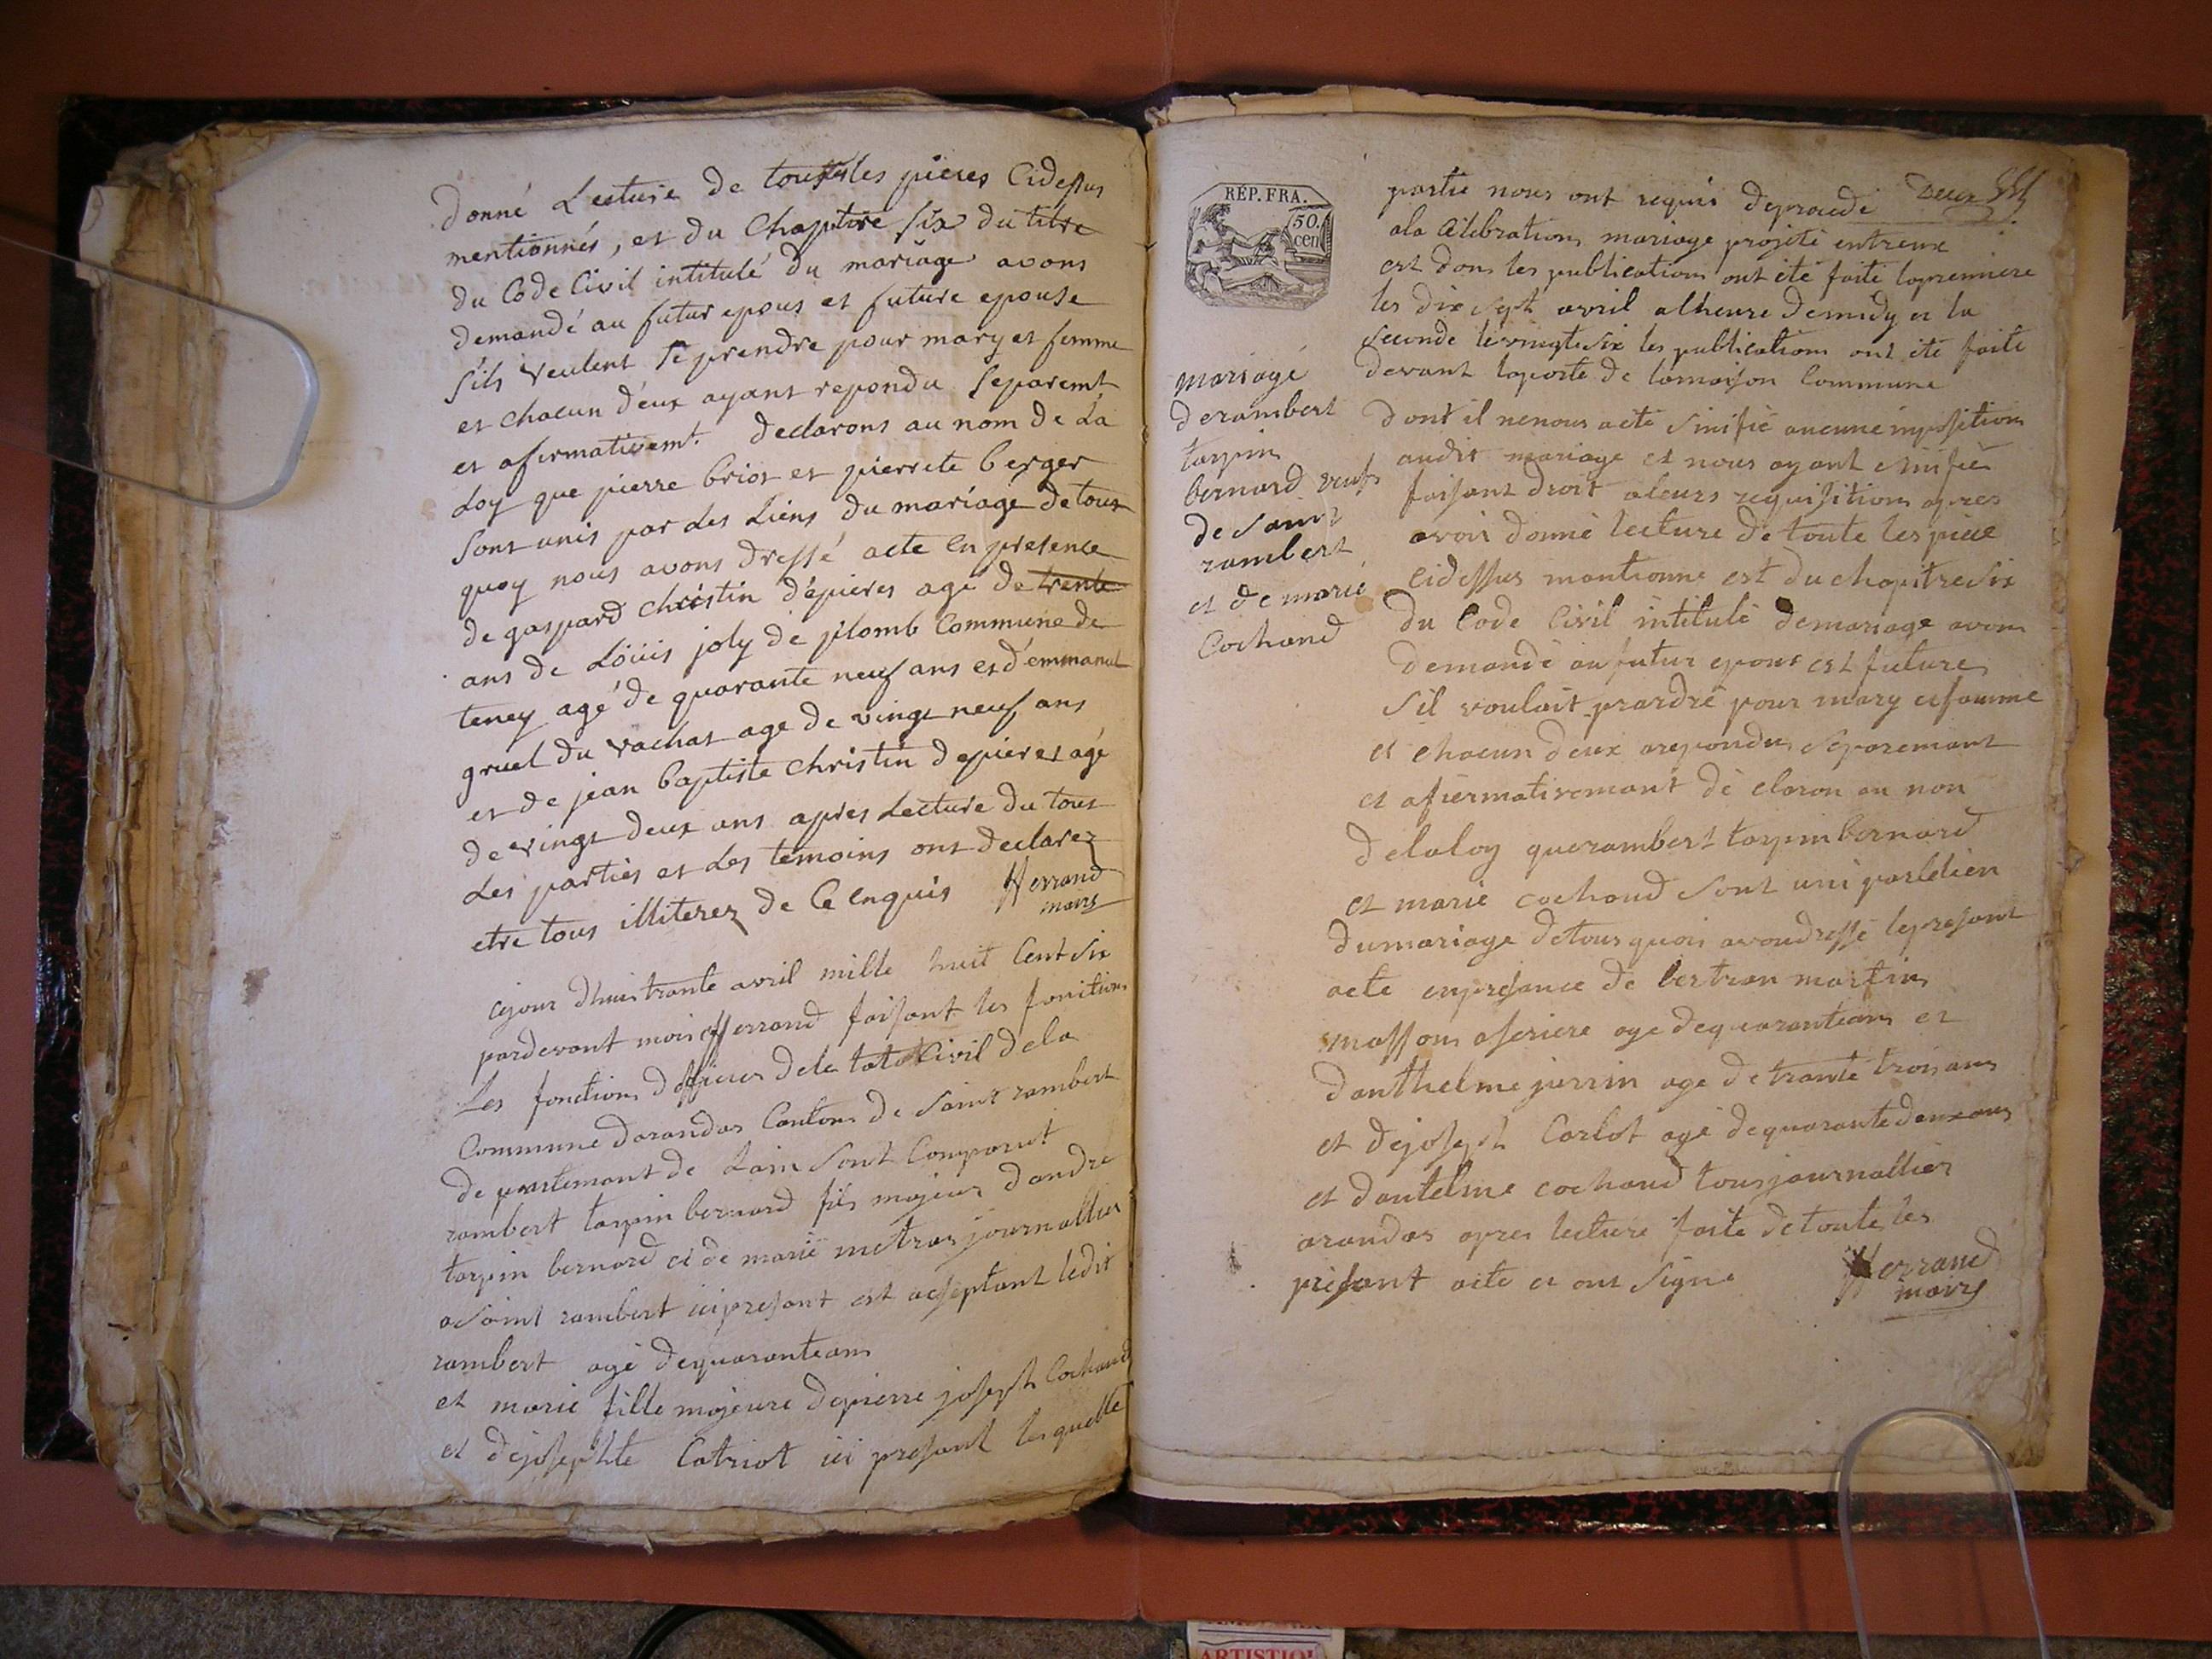 donné Lecture de toutes les pieces Cidessus
mentionnés, et du Chapitre six du titre
du Code Civil intitulé du mariage avons
demandé au futur epous et future epouse
s'ils veulent se prendre pour mary et femme
et chacun d'eux ayant repondu separemt
et afirmativemt. declarons au nom de La
Loy que pierre briot et pierrete berger
sont unis par Les Liens du mariage de tout
quoy nous avons dressé acte en presence
de gaspard christin d'épieres agé de trente
ans de Löüis joly de plomb Commune de
teney agé de quarante neuf ans et d'emmanuel
gruel du vachat age de vingt neuf ans
et de jean baptiste christin d'epieres agé
de vingt deux ans apres Lecture du tout
Les parties et Les temoins ont declarez
etre tous illiterez de Ce enquis ferrand
maire
cejour dhui trante avril mille huit Cent Six
pardevant moi ferrand faisant les fonitions
Les fonctions dofficier dele tata Civil dela
Commune darandas Canton de Saint rambert
departemant de Lain Sont Comparut
rambert tarpin bernard fils majeur dandre
tarpin bernard et de marie metras journallier
a Saint rambert ici presant est acseptant ledit
rambert agé dequaranteans
et marie fille majeure depierre joseph Cochaud
et dejosephte Catriot ici presant lesquelle
RÉP. FRA.
50
cen
mariage
derambert
tarpin
bernard veuf
de Saint
rambert
et de marie
Cochaud
partie nous ont requis deprocede Deux
ala Celebration mariage projeté entreux
est dont les publication ont été faite lapremiere
les dix Sept avril alheure demidy et la
Seconde levingtesix les publication ont été faite
devant laporte de lamaison Commune
dont il nenous aété Sinifié aucune imposition
audit mariage et nous ayant
faisant droit aleurs requisition apres
avoir donné lecture de toute les piece
cidessus mantionne est du chapitre Six
du Code Civil intitulé demariage avon
demandé aufutur epous est future
S'il vouloit prardre pour mary et famme
et chacun deux arepondu Separemant
et afiermativemant dé claron au non
delaloy querambert tarpin bernard
et marie cochaud Sont uni parldien
dumariage detous quois avondressé lepresant
acte enpresance de bertran martin
masson aseriere age dequaranteans et
danthelme jurrin age de trante troisans
et dejoseph Carlot agé dequarantedeuxans
et dantelme cochaud tous journallier
arandas apres lecture faite detoute les
présant acte et ont Signe ferrand
maire